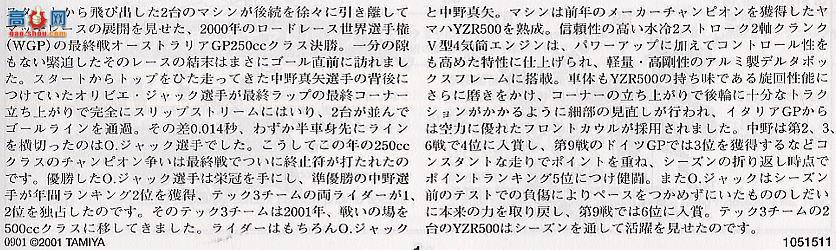 から飛び出した2台のマシンが後続を徐々に引き離して
ースの展開を見せた、2000年のロードレース世界選手権
(WGP)の最終戦オーストラリアGP250ccクラス決勝。一分の隙
もない緊迫したそのレースの結末はまさにゴール直前に訪れまし
た。スタートからトップをひた走ってきた中野真矢選手の背後に
つけていたオリビエ・ジャック選手が最終ラップの最終コーナー
立ち上がりで完全にスリップストリームにはいり、2台が並んで
ゴールラインを通過。その差0.014秒、わずか半車身先にライン
を横切ったのはO.ジャック選手でした。こうしてこの年の250cc
クラスのチャンピオン争いは最終戦でついに終止符が打たれたの
です。優勝したO.ジャック選手は栄冠を手にし、準優勝の中野選
手が年間ランキング2位を獲得、テック3チームの両ライダーが1、
2位を独占したのです。そのテック3チームは2001年、戦いの場を
500ccクラスに移してきました。ライダーはもちろんO.ジャック
0901 ©2001 TAMIYA
と中野真矢。マシンは前年のメーカーチャンピオンを獲得したヤ
マハYZR500を熟成。信頼性の高い水冷2ストローク2軸クランク
V型4気筒エンジンは、パワーアップに加えてコントロール性を
も高めた特性に仕上げられ、軽量・高剛性のアルミ製デルタボッ
クスフレームに搭載。車体もYZR500の持ち味である旋回性能に
さらに磨きをかけ、コーナーの立ち上がりで後輪に十分なトラク
ションがかかるように細部の見直しが行われ、イタリアGPから
は空力に優れたフロントカウルが採用されました。中野は第2、3、
6戦で4位に入賞し、第9戦のドイツGPでは3位を獲得するなどコ
ンスタントな走りでポイントを重ね、シーズンの折り返し時点で
ポイントランキング5位につけ健闘。またO.ジャックはシーズン
前のテストでの負傷によりペースをつかめずにいたもののしだい
に本来の力を取り戻し、第9戦では6位に入賞。テック3チームの2
台のYZR500はシーズンを通して活躍を見せたのです。
1051511